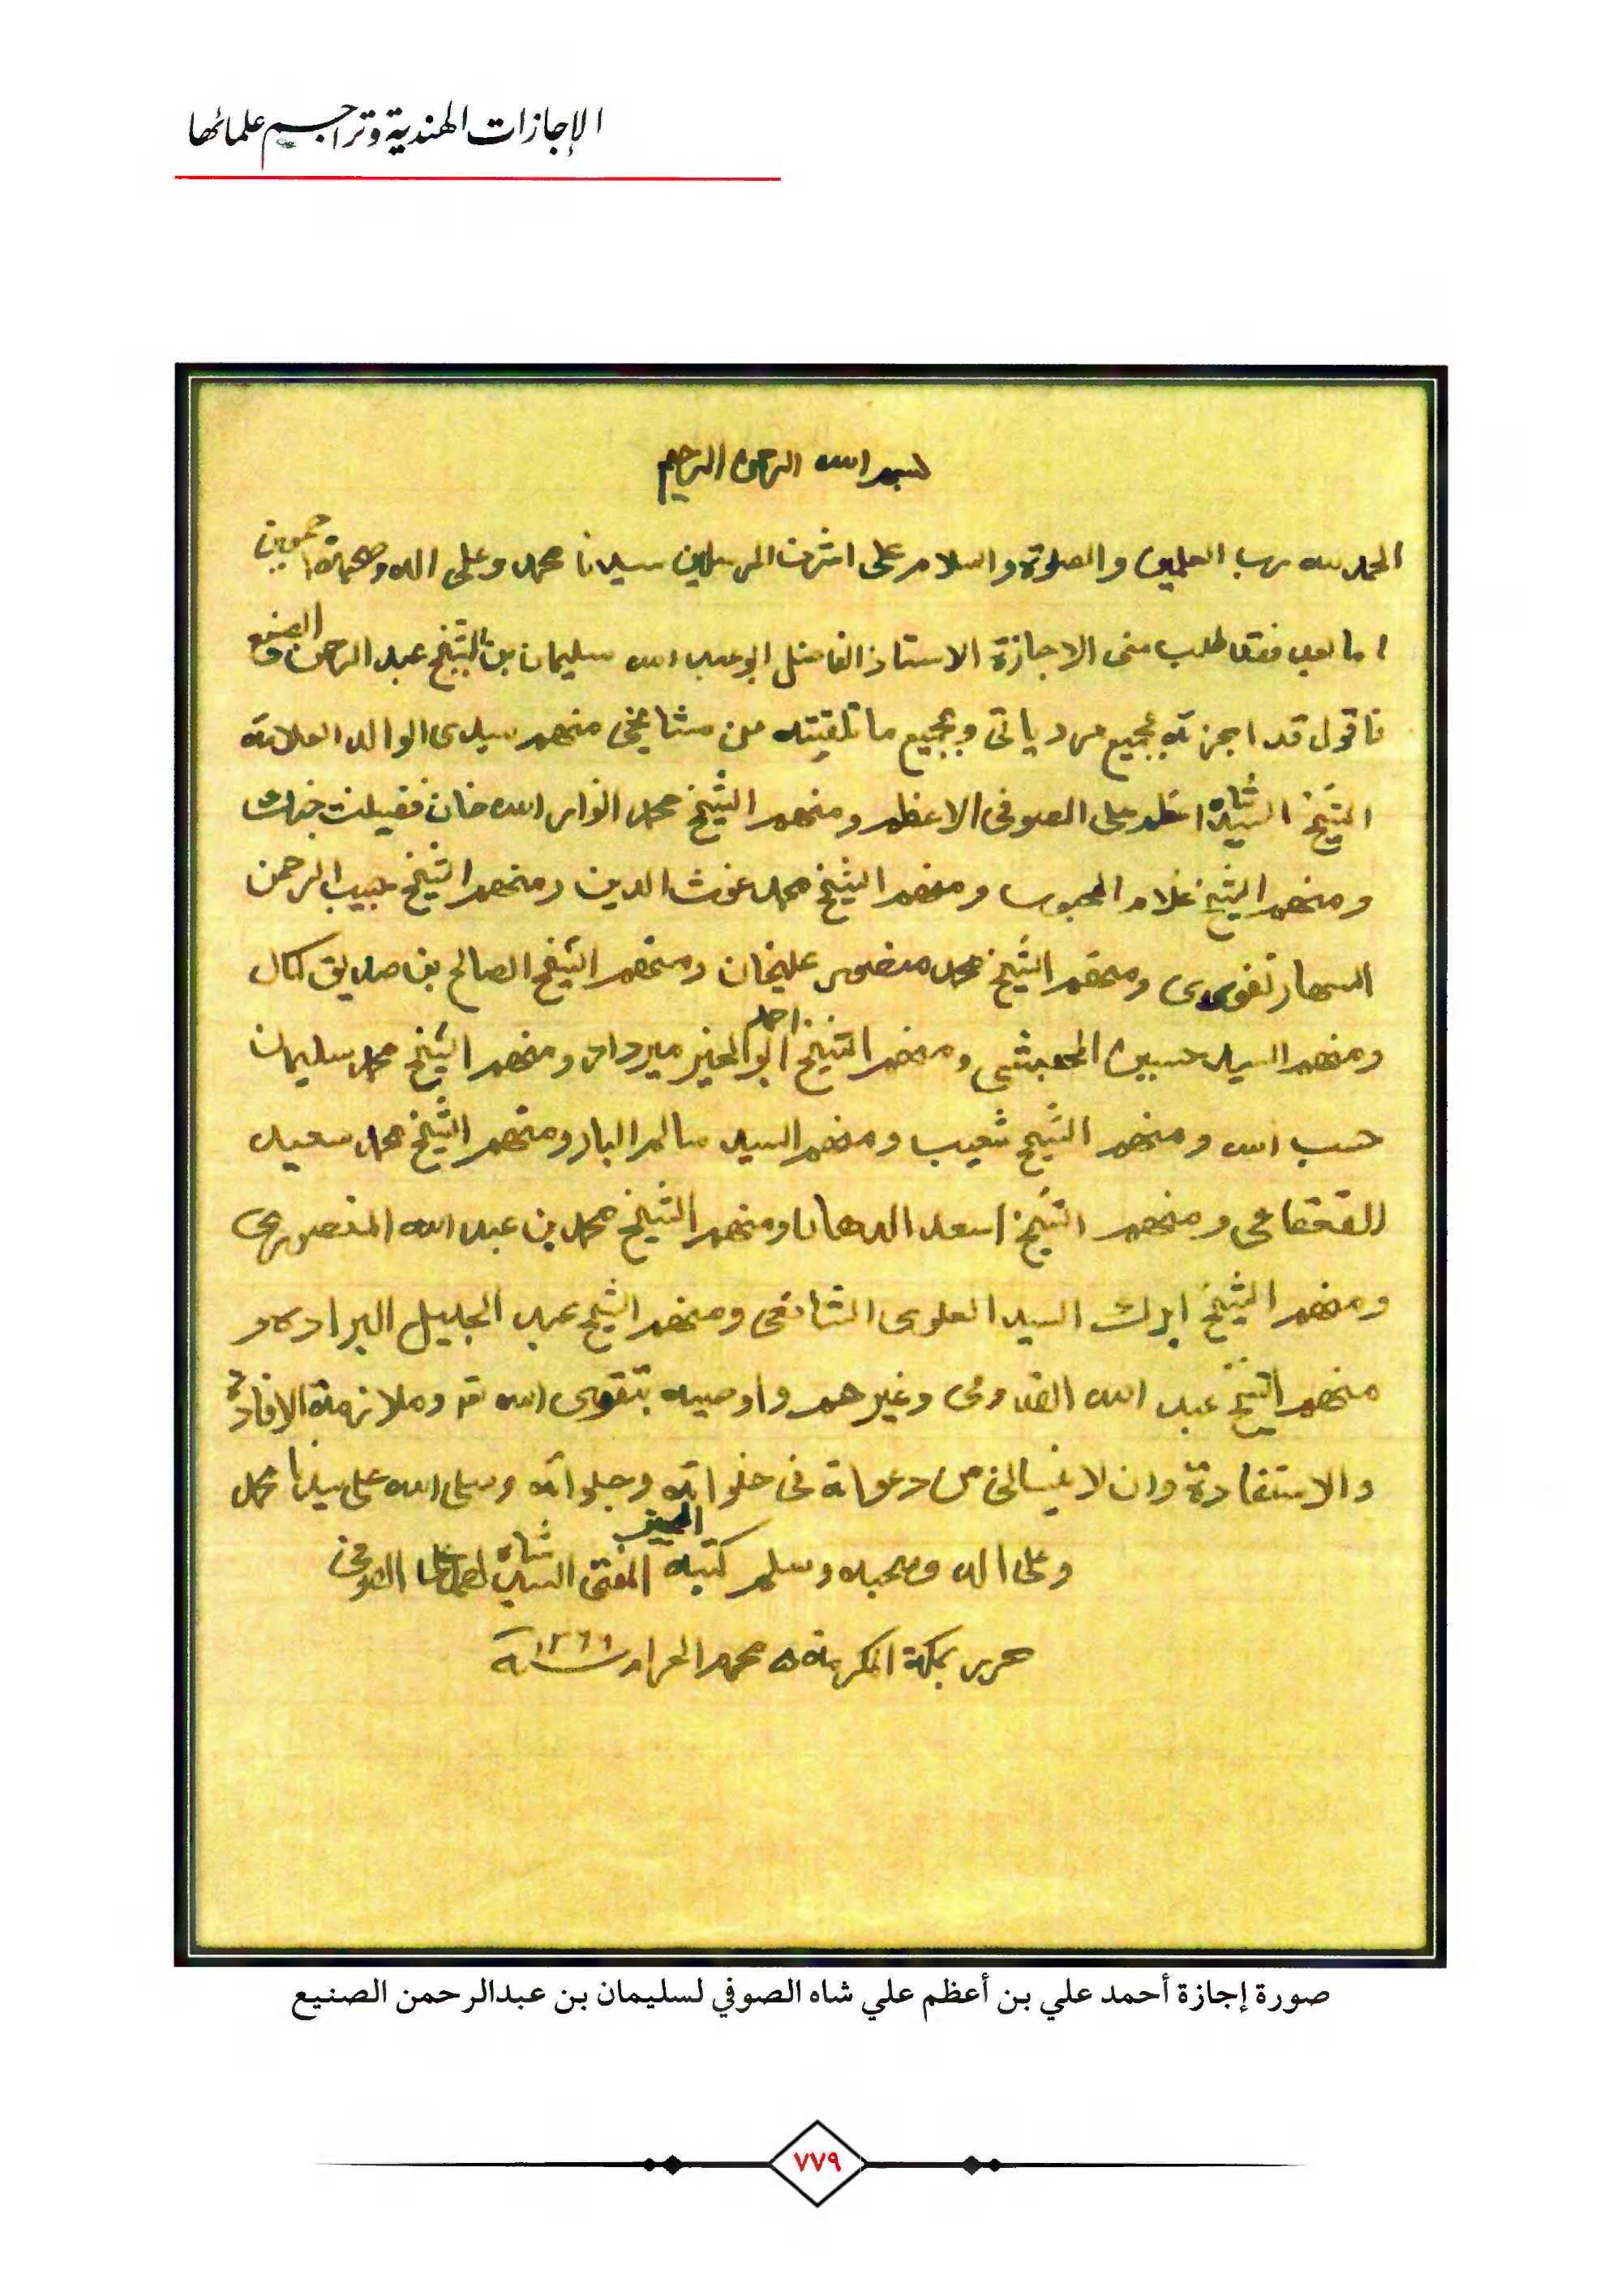 الإجازات الهندية وتراجم علمائها
بسم الله الرحمن الرحيم
الحمد لله رب العلمين والصلوة والسلام على اشرف المرسلين سيدنا محمد وعلى اله وصحبه اجمعين
اما بعد فقد طلب منى الاجازة الاستاذ الفاضل ابو عبد الله سليمان بن الشيخ عبد الرحمن الصنيع
فاقول قد اجزته بجميع مروياتى وبجميع ما تلقيته من مشايخى منهم سيدى الوالد العلامة
الشيخ السيد شاه اعظم على الصوفى الاعظم ومنهم الشيخ محمد انوار الله خان فضيلت جنك
ومنهم الشيخ غلام المحبوب ومنهم الشيخ محمد غوث الدين ومنهم الشيخ حبيب الرحمن
السهارنفورى ومنهم الشيخ محمد منصور عليخان ومنهم الشيخ الصالح بن صديق كمال
ومنهم السيد حسين الحبشى ومنهم الشيخ احمد ابو الخير ميرداد ومنهم الشيخ محمد سليمان
حسب الله ومنهم الشيخ شعيب ومنهم السيد سالم البار ومنهم الشيخ محمد سعيد
القعقاعى ومنهم الشيخ اسعد الدهان ومنهم الشيخ محمد بن عبد الله المنصورى
ومنهم الشيخ السيد العلوى الشافعى ومنهم الشيخ عبد الجليل البراده و
منهم الشيخ عبد الله القدومى وغيرهم واوصيه بتقوى الله تع وملازمة الافادة
والاستفادة وان لا ينسانى من دعواته فى خلواته وجلواته وصلى الله على سيدنا محمد
وعلى اله وصحبه وسلم كتبه المجيز المفتى السيد شاه احمد على الصوفى
حرر بمكة المكرمة ٥ محرم الحرام سنة ١٣٦٦
صورة إجازة أحمد علي بن أعظم علي شاه الصوفي لسليمان بن عبدالرحمن الصنيع
٧٧٩